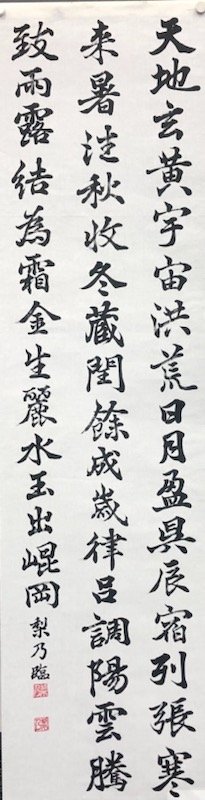 天地玄黄宇宙洪荒日月盈昃辰宿列張寒
来暑往秋收冬蔵閏餘成嵗律吕調陽雲騰
致雨露結為霜金生麗水玉出崐岡
梨乃臨